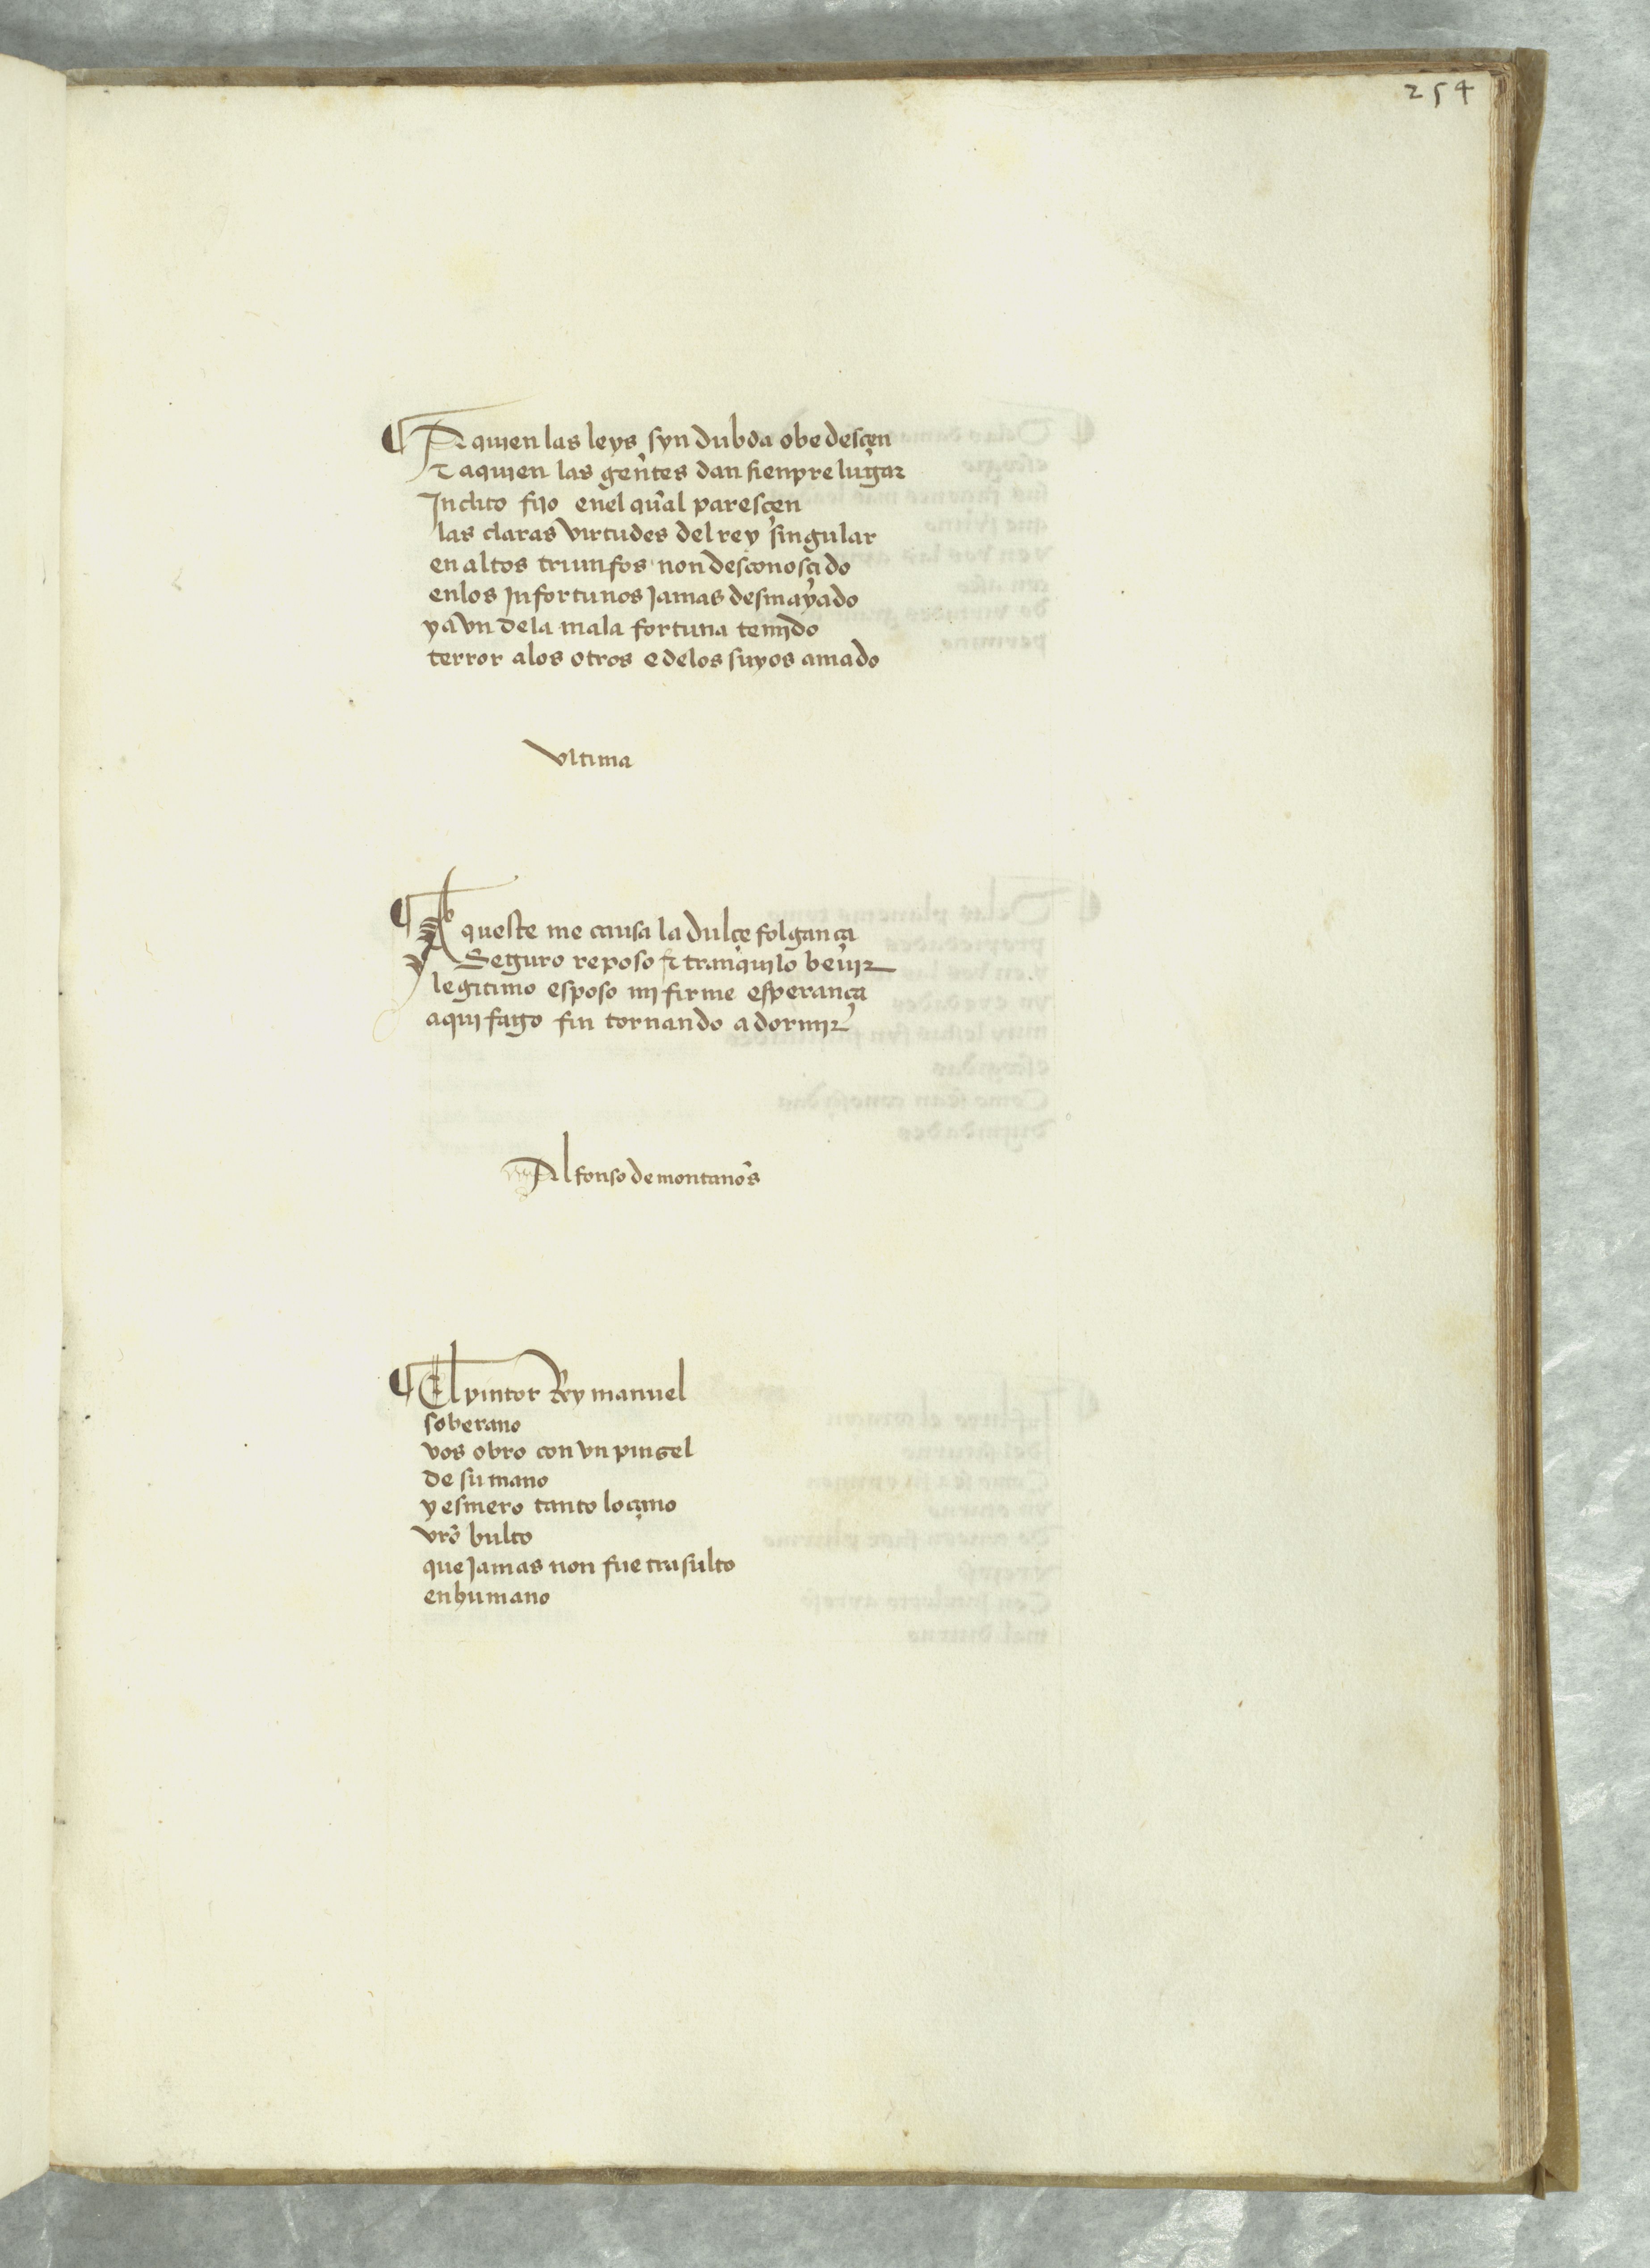 254
¶ A quien las leys syn dubda obedesçen
⁊ aquien las gentes dan sienpre lugar
Jnclito fijo enel qual paresçen
las claras virtudes del rey singular
en altos triunfos non desconosçido
enlos jnfortunos jamas desmayado
y avn dela mala fortuna temido
terror alos otros e delos suyos amado
vltima
¶ Aqueste me causa la dulçe folgança
y Seguro reposo ⁊ tranquilo beuir
legitimo esposo mi firme esperança
aqui fago fin tornando a dormir
Alfonso de montanos
¶ El pintor Rey manuel
soberano
vos obro con vn pinsel
de su mano
y esmero tanto loçano
vro bulto
que jamas non fue trasulto
en humano